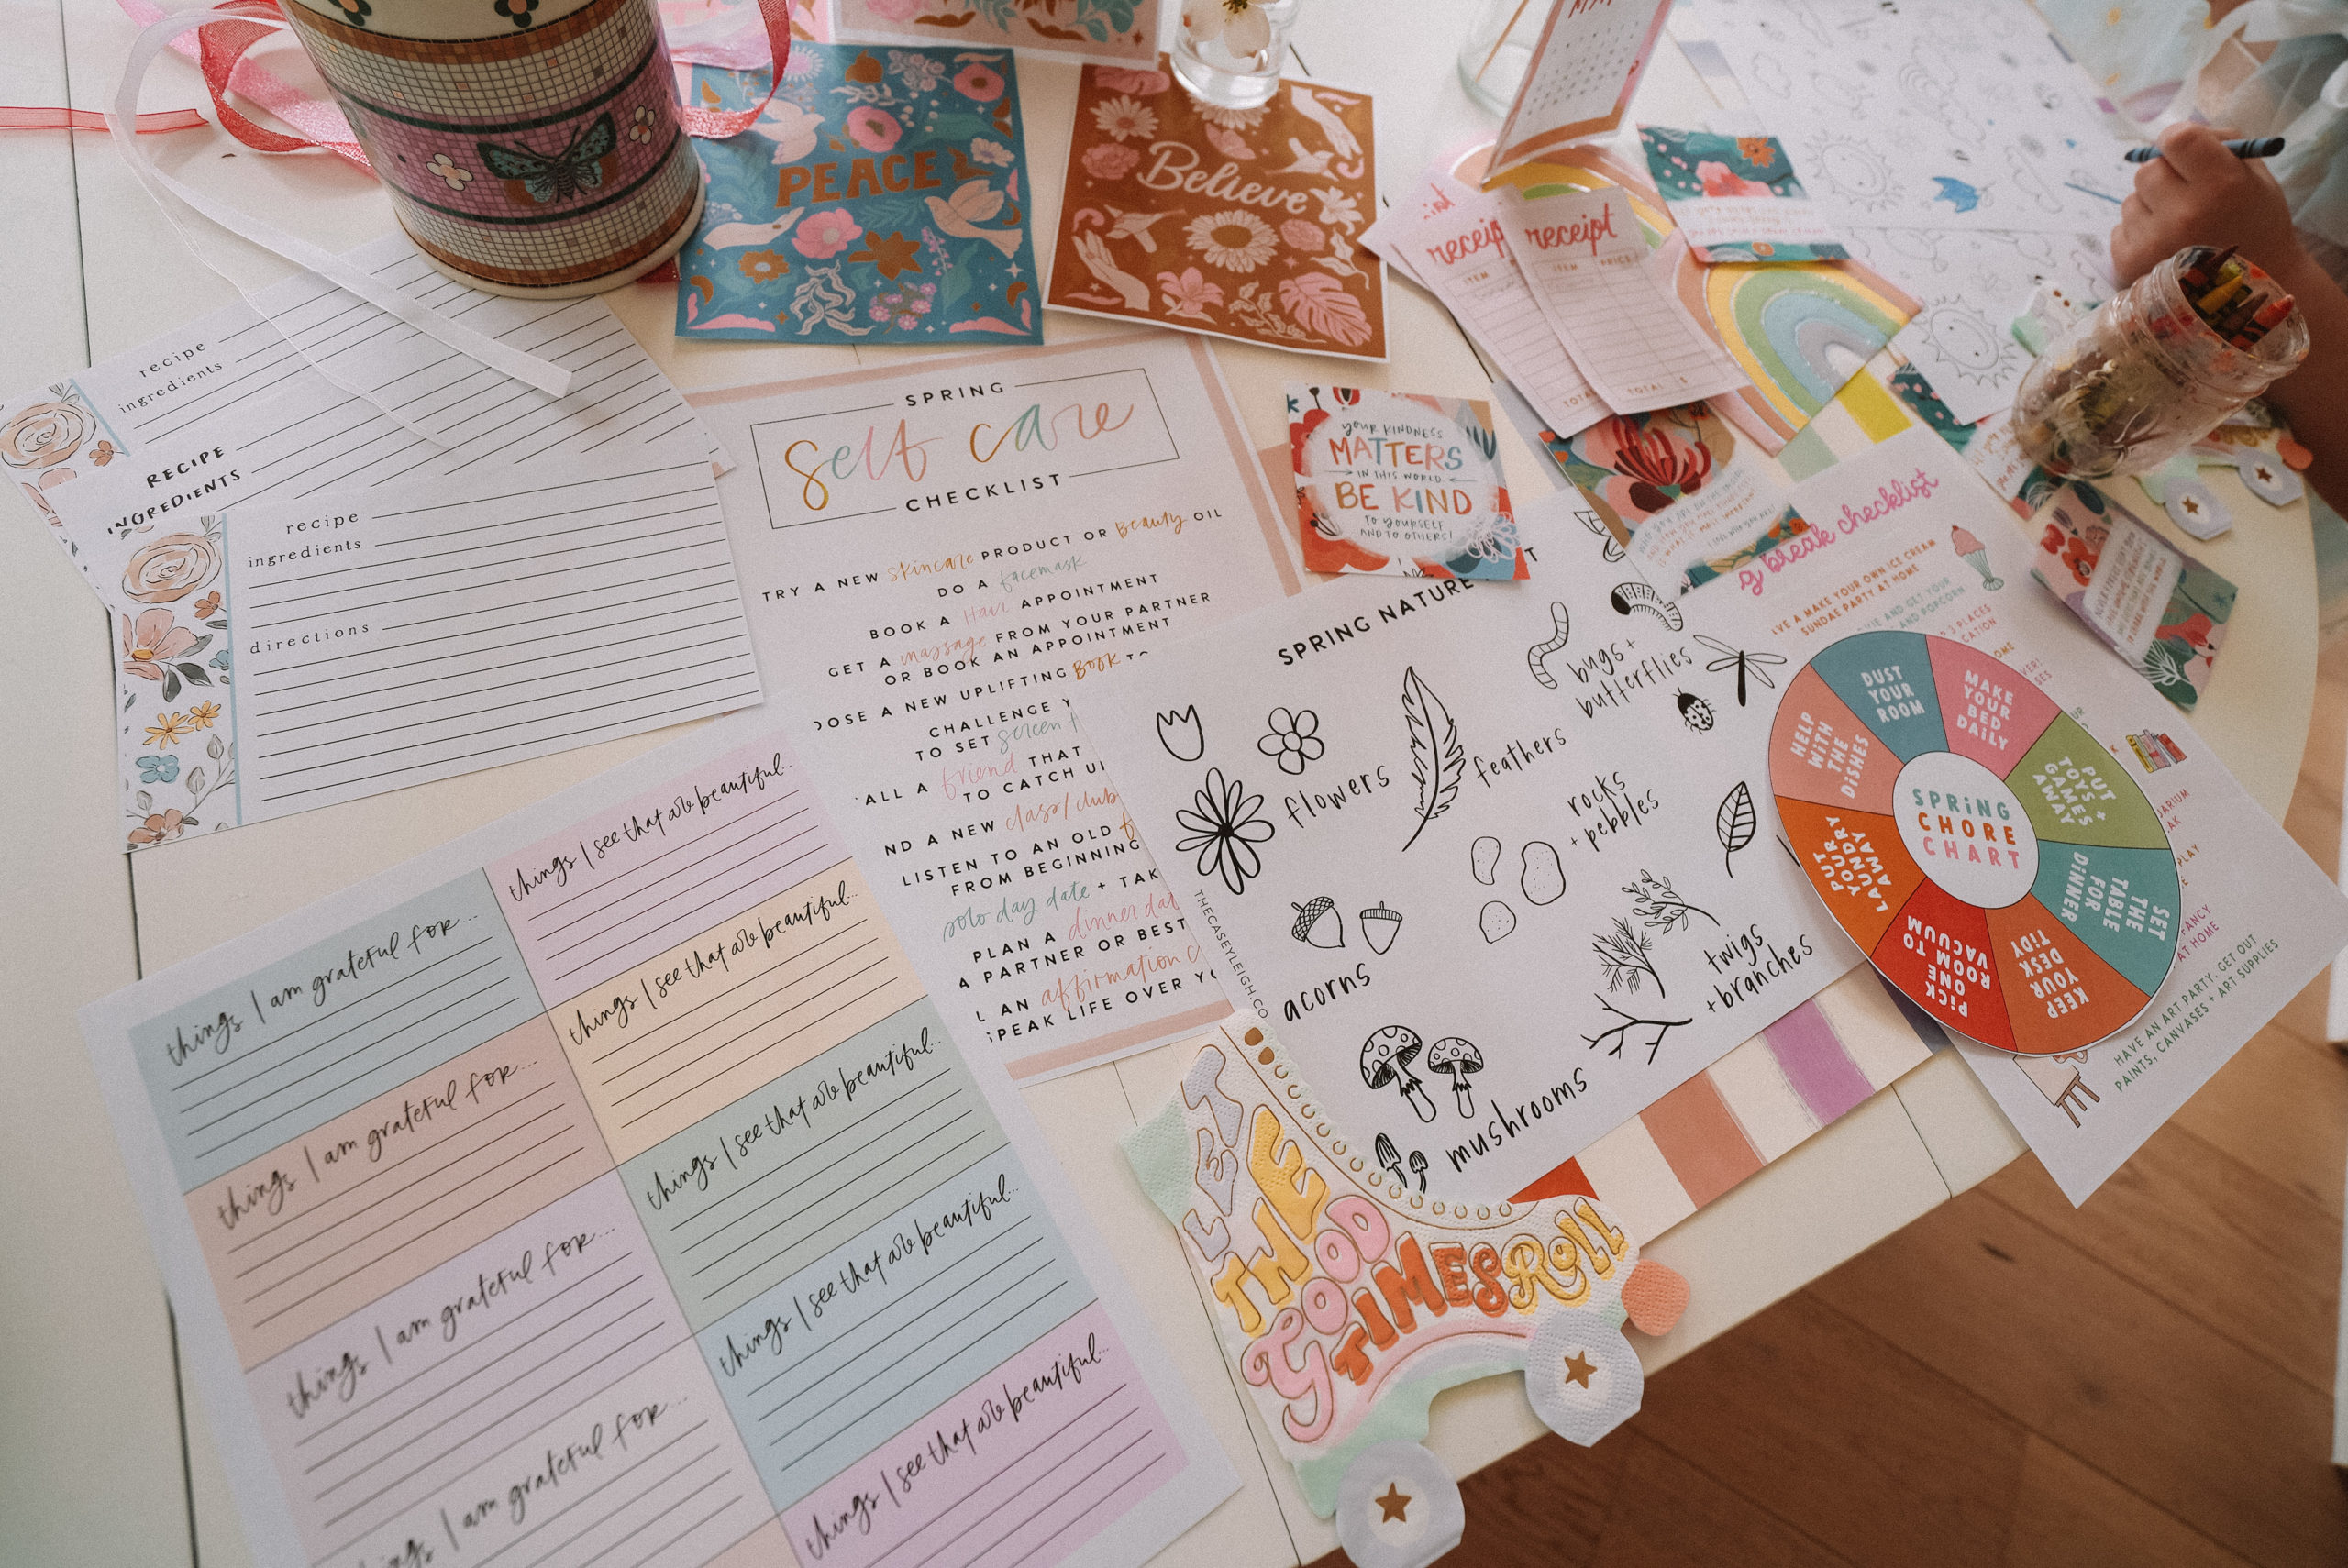 PEACE
Believe
receipt
ITEM
PRICE
TOTAL $
receip
ITEM
TOTA
recipe
ingredients
RECIPE
INGREDIENTS
recipe
ingredients
directions
SPRING
self care
CHECKLIST
TRY A NEW skincare PRODUCT OR Beauty OIL
DO A facemask
BOOK A Hair APPOINTMENT
GET A massage FROM YOUR PARTNER
OR BOOK AN APPOINTMENT
OOSE A NEW UPLIFTING BOOK TO
CHALLENGE Y
TO SET screen t
ALL A friend THAT
TO CATCH U
ND A NEW class/club
LISTEN TO AN OLD
FROM BEGINNING
solo day date + TAK
PLAN A dinner dat
A PARTNER OR BEST
AN affirmation c
SPEAK LIFE OVER YO
YOUR KINDNESS
MATTERS
IN THIS WORLD.
BE KIND
TO YOURSELF
AND TO OTHERS!
SPRING NATURE
flowers
feathers
bugs +
butterflies
rocks
+ pebbles
acorns
twigs
+ branches
mushrooms
THECASEYLEIGH.CO
g break checklist
VE A MAKE YOUR OWN ICE CREAM
SUNDAE PARTY AT HOME
VIE AND GET YOUR
AND POPCORN
3 PLACES
CATION
OME
AT HOME
HAVE AN ART PARTY. GET OUT
PAINTS, CANVASES + ART SUPPLIES
SPRING
CHORE
CHART
DUST
YOUR
ROOM
MAKE
YOUR
BED
DAILY
PUT
TOYS +
GAMES
AWAY
SET
THE
TABLE
FOR
DINNER
KEEP
YOUR
DESK
TIDY
PICK
ONE
ROOM TO
VACUUM
PUT
YOUR
LAUNDRY
AWAY
HELP
WITH
THE
DISHES
things I am grateful for...
things I am grateful for...
things I am grateful for...
things I am grateful for...
things I see that are beautiful...
things I see that are beautiful...
things I see that are beautiful...
things I see that are beautiful...
things I see that are beautiful...
LET
THE
GOOD
TIMES ROLL